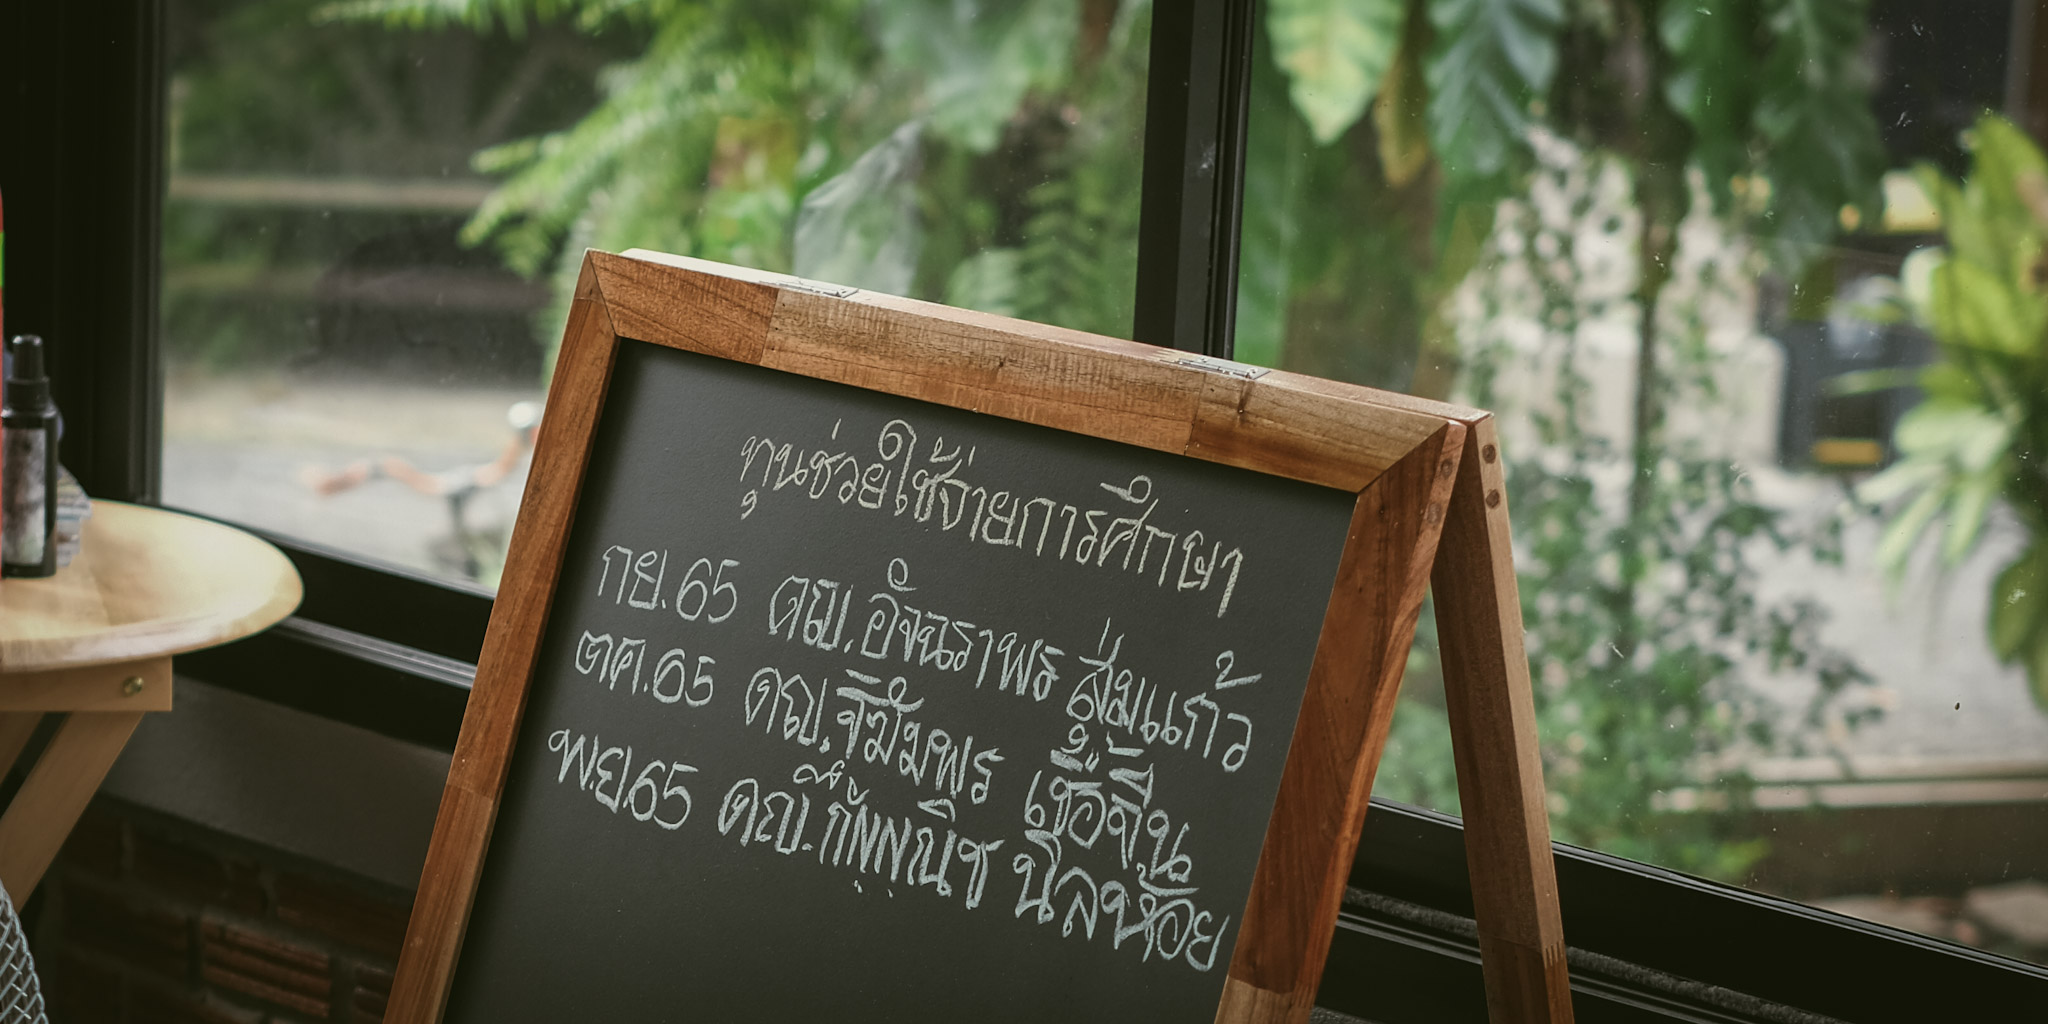 ทุนช่วยใช้จ่ายการศึกษา
กย.65 ดญ.อัจฉราพร สุ่มแก้ว
ตค.65 ดญ.จิมัมพร เชื้อจีน
พ.ย.65 ดญ. นิลห้อย